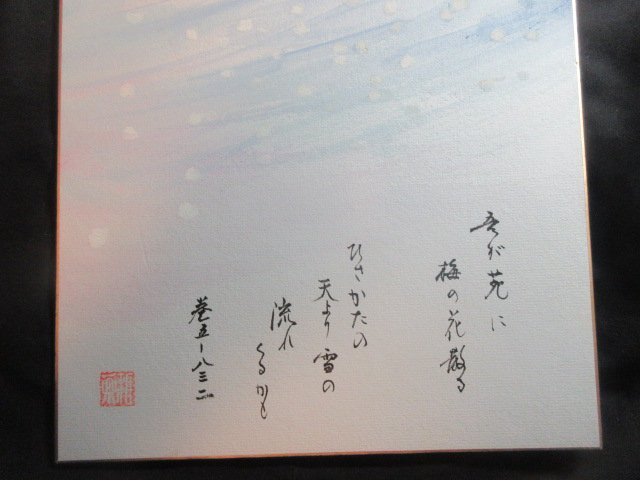 吾が苑に
梅の花散る
ひさかたの
天より雪の
流れ
くるかも
巻五-八二二